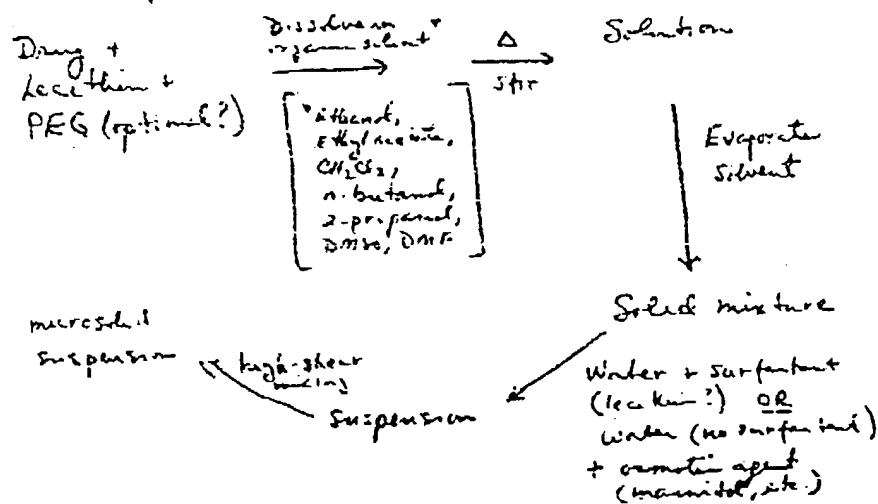 Drug +
Lecethin +
PEG (optional?)
Dissolve in
organic solvent*
[*ethanol,
Ethyl acetate,
CH2Cl2,
n-butanol,
2-propanol,
DMSO, DMF]
Δ
stir
Solution
Evaporate
Solvent
Solid mixture
Water + surfactant
(lecithin?) OR
water (no surfactant)
+ osmotic agent
(mannitol, etc.)
suspension
high-shear
mixing
suspension